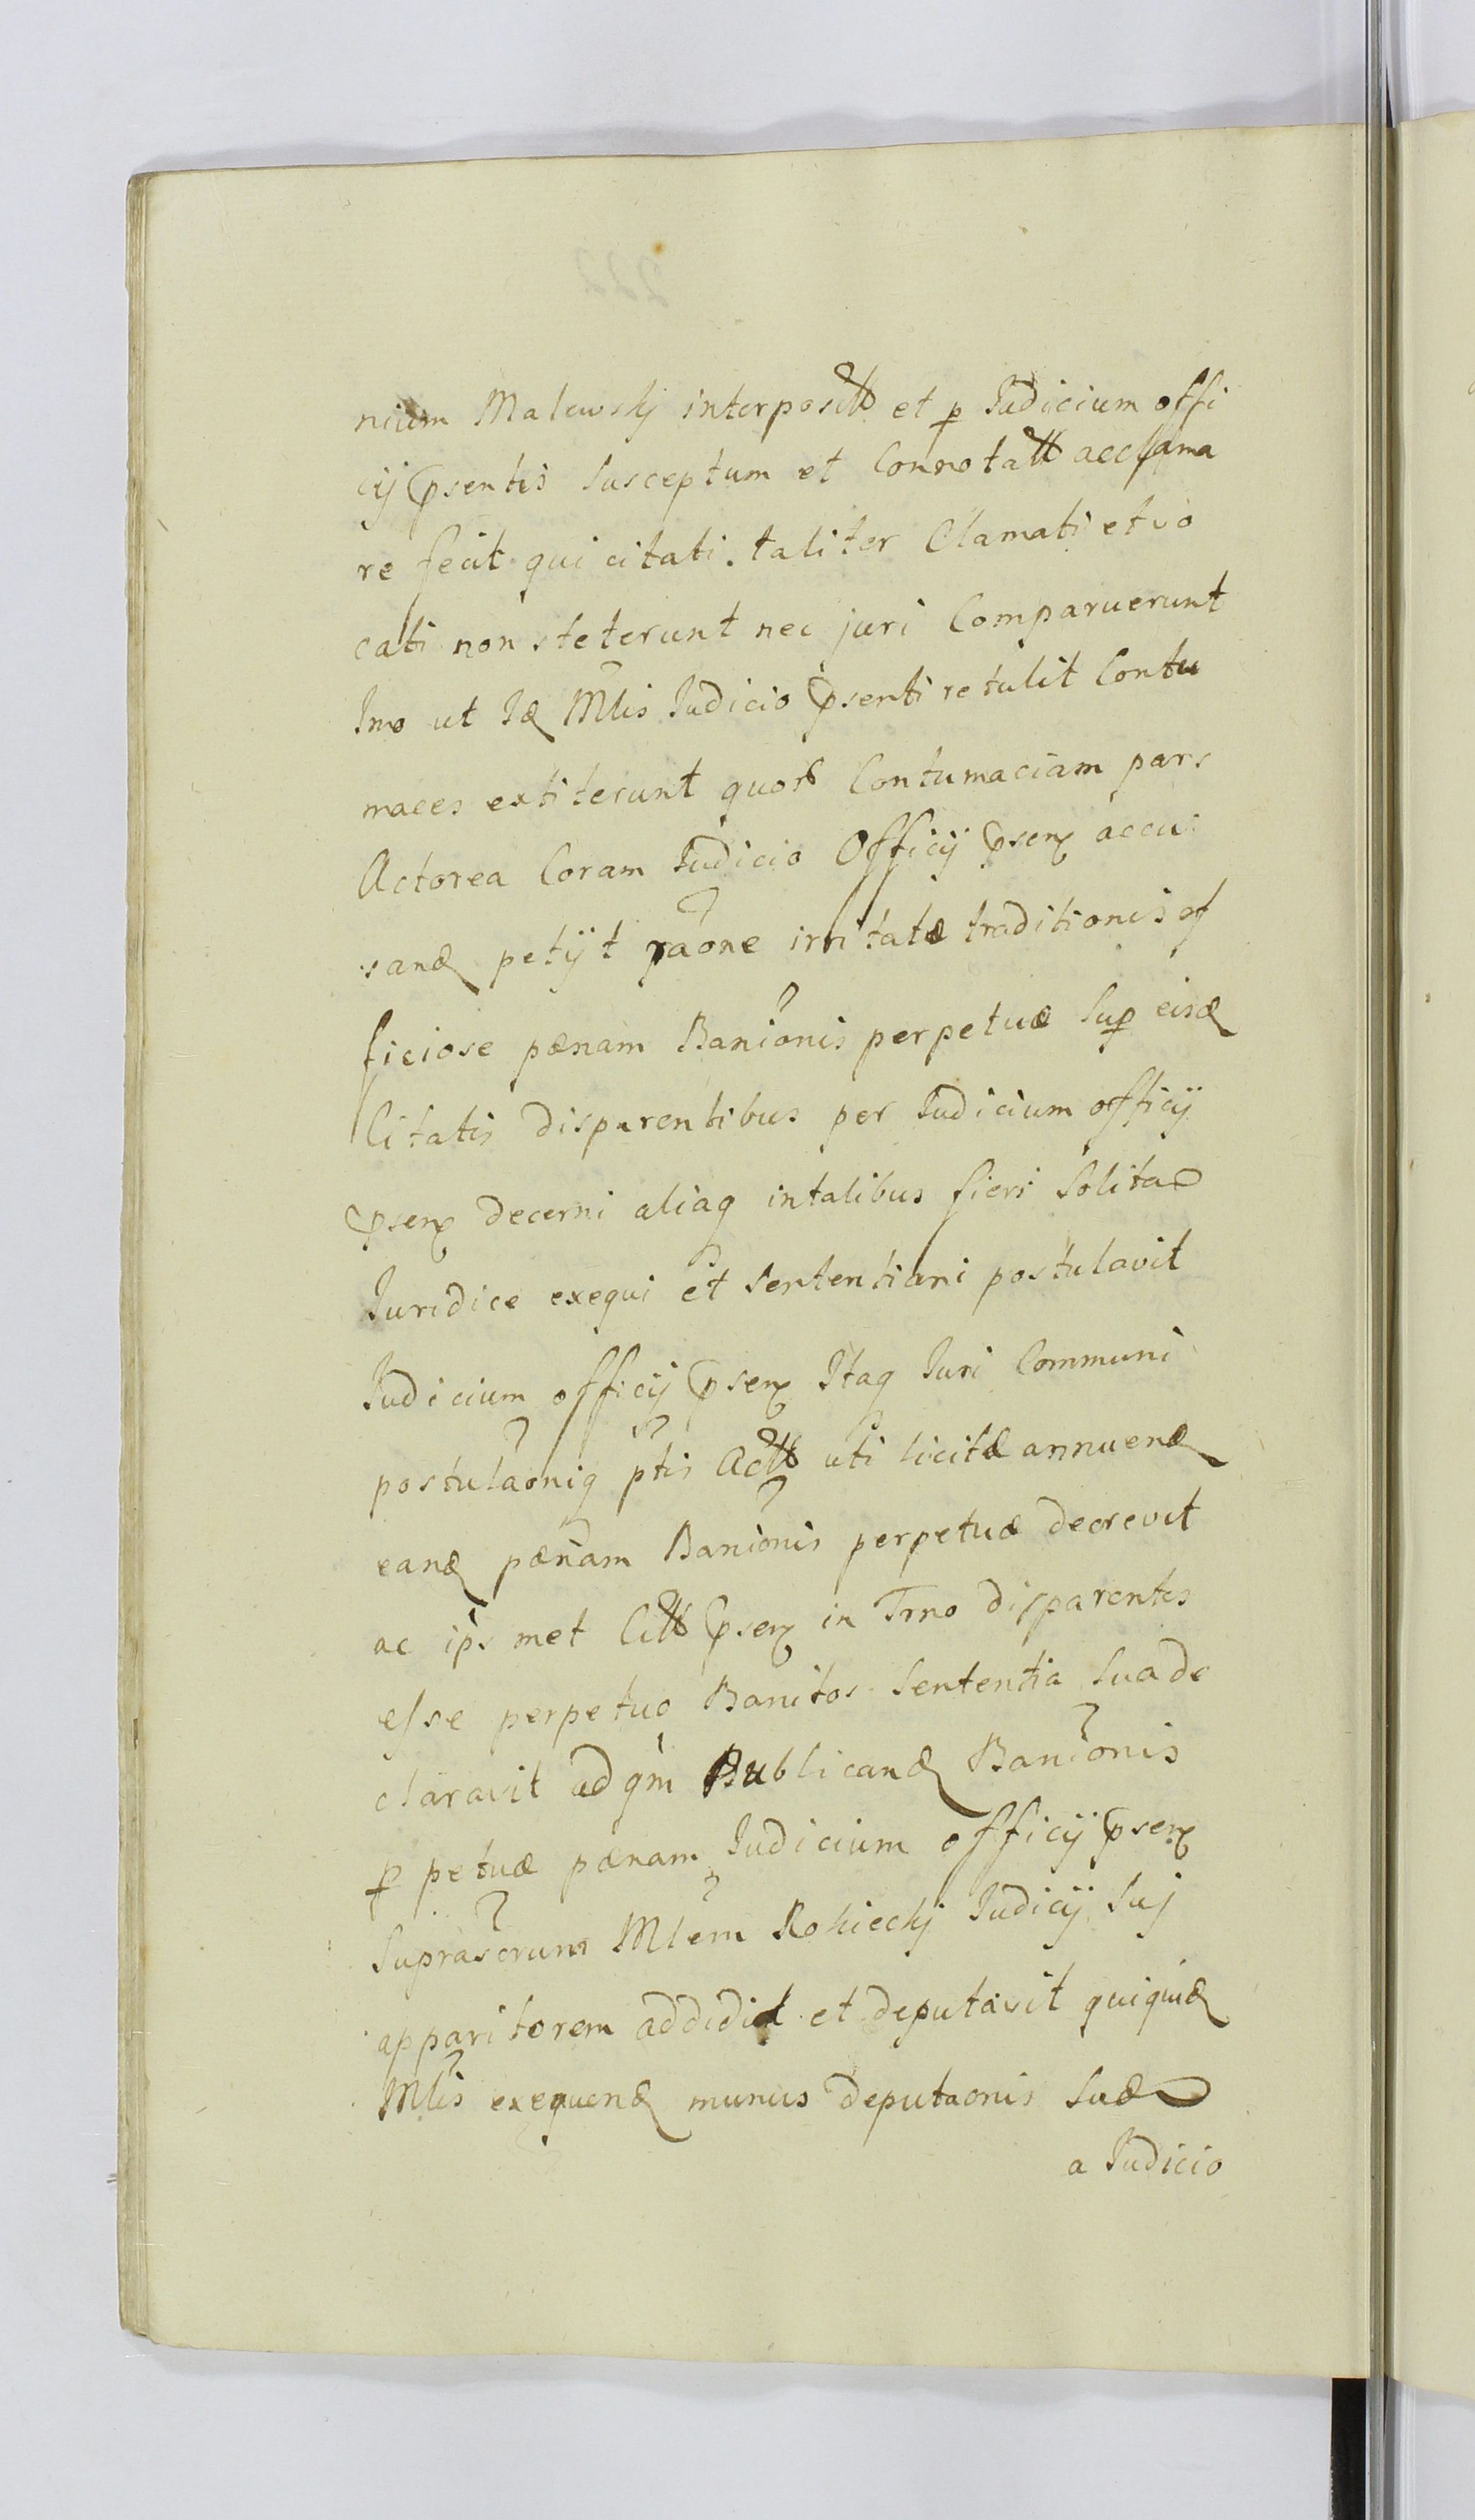 nium Malewskj interposittt et p Judicium offi
cij psentis Susceptum et Connotattt acclama
re fecit qui citati. taliter Clamati et vo
cati non steterunt nec juri Comparuerunt
Imo ut Id Mlis Judicio psenti retulit Contu
maces extiterunt quor Contumaciam pars
Actorea Coram Judicio Officij psen accu
sand petijt raone irritatæ traditionis of
ficiose pænam Banionis perpetuæ Sup eisd
Citatis disparentibus per Judicium officij
psen decerni aliaq in talibus fieri Solita
Juridice exequi et Sententiari postulavit
Judicium officij psen Itaq Juri Communi
postulaoniq ptis Acttt uti licitæ annuend
eand pænam Banionis perpetuæ decrevit
ac ips met Cittt psen in Trno disparentes
esse perpetuo Banitos Sententia Sua de
claravit ad qm Publicand Banionis
p petuæ pænam Judicium officij psen
Suprascrum Mlem Rokieckj Judicij Suj
apparitorem addidit et deputavit quiquid
Mlis exequend munus deputaonis Suæ
a Judicio